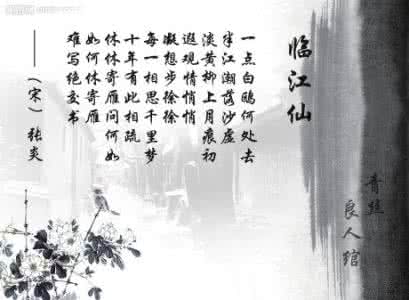 临江仙
一点白鸥何处去
半江潮落沙虚
淡黄柳上月痕初
遐观情悄悄
凝想步徐徐
每一相思千里梦
十年有此相疏
休休寄雁问何如
如何休寄雁
难写绝交书
——(宋)张炎
青丝
良人绾